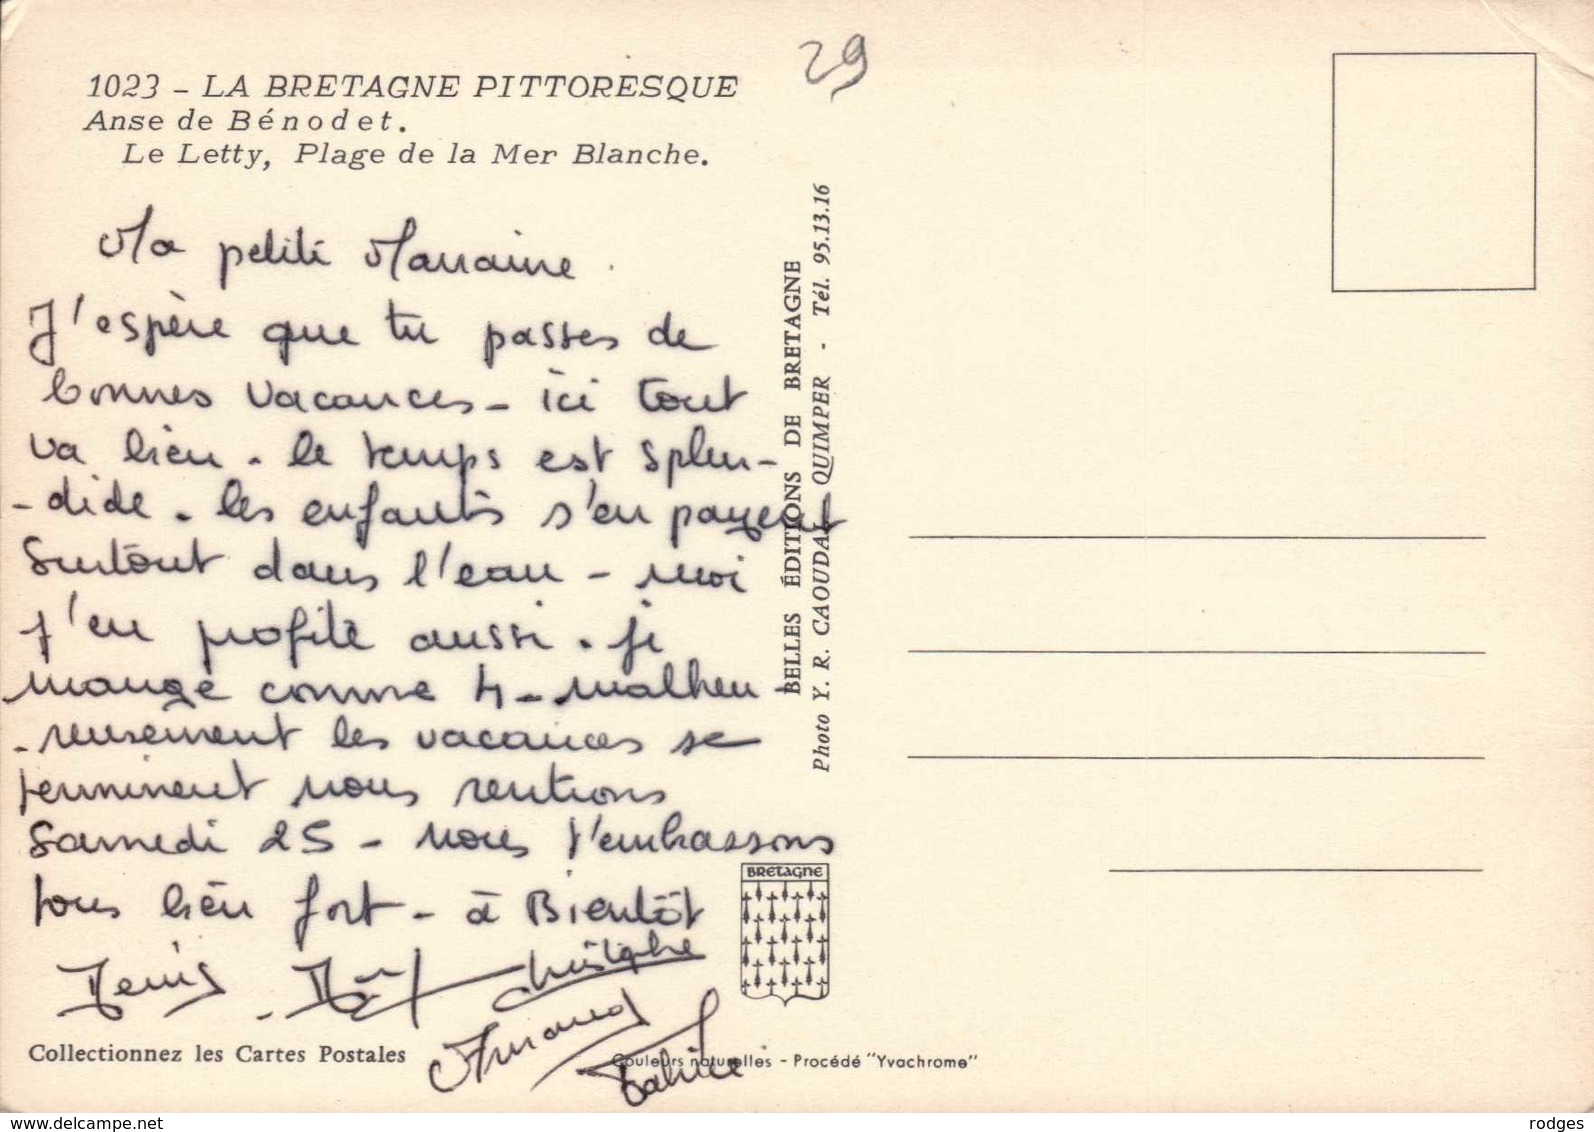 29
1023 - LA BRETAGNE PITTORESQUE
Anse de Bénodet.
Le Letty, Plage de la Mer Blanche.
Ma petite Marraine.
J'espère que tu passes de
bonnes vacances - ici tout
va bien. le temps est splen-
-dide. les enfants s'en payent
surtout dans l'eau - moi
j'en profite aussi. je
mange comme 4 - malheu-
-reusement les vacances se
terminent nous rentrons
Samedi 25 - nous t'embrassons
tous bien fort - à Bientôt
Denis
Christophe
Arnaud
BELLES ÉDITIONS DE BRETAGNE
Photo Y. R. CAOUDAL QUIMPER - Tél. 95.13.16
BRETAGNE
Collectionnez les Cartes Postales
Couleurs naturelles - Procédé "Yvachrome"
www.delcampe.net
rodges